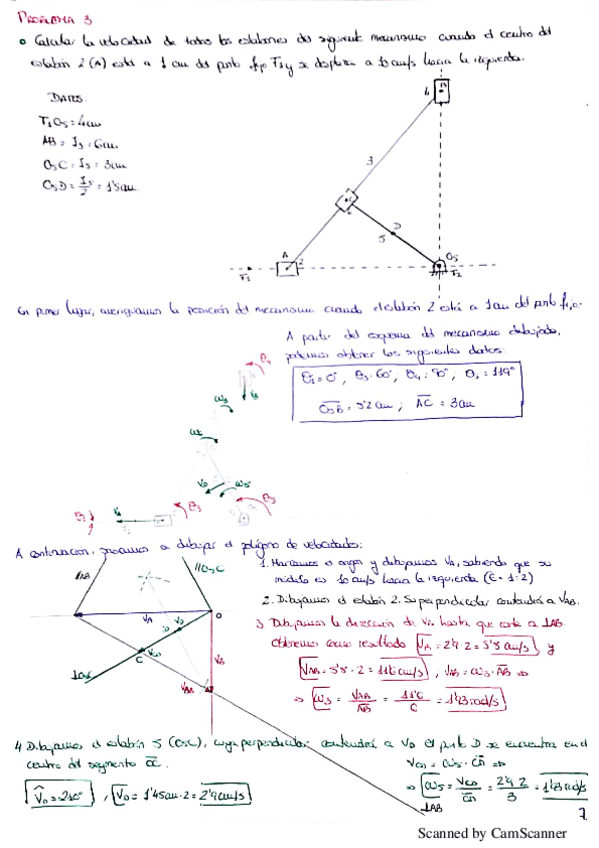 PROBLEMA 3
o Calcular la velocidad de todos los eslabones del siguiente mecanismo cuando el centro del
eslabón 2 (A) está a 1 cm del punto fijo T1 y se desplaza a 10 cm/s hacia la izquierda.
DATOS:
T1O5 = 4cm
AB = I3 = 6cm
O5C = I5 = 3cm
O5D = I5/2 = 1'5cm
4
B
3
C
D
5
A
2
O5
T1
T2
En primer lugar, averiguamos la posición del mecanismo cuando el eslabón 2 está a 1cm del punto fijo.
A partir del esquema del mecanismo dibujado,
podemos obtener los siguientes datos:
= 0°, θ3 = 60°, θ4 = 90°, = 119°
O5B = 5'2cm ; AC = 3cm
θ4
ω3
VD
ω5
θ3
A continuación, pasamos a dibujar el polígono de velocidades:
1. Marcamos el origen y dibujamos VA, sabiendo que su
módulo es 10 cm/s hacia la izquierda (E = 1:2)
2. Dibujamos el eslabón 2. Su perpendicular contendrá a VAB.
3. Dibujamos la dirección de VB hasta que corte a ⊥AB.
Obtenemos como resultado = 2'9·2 = 5'8 cm/s y
VAB = 5'8·2 = 11'6 cm/s , VAB = ω3·AB ⇒
⇒ ω3 = VAB/AB = 11'6/6 = 1'93 rad/s
//AB
//O5C
VA
VD
O
D
C
VCD
VB
VAB
⊥O5C
⊥AB
4. Dibujamos el eslabón 5 (O5C), cuya perpendicular contendrá a VD. El punto D se encuentra en el
centro del segmento OC.
VD = 210° , VD = 1'45cm·2 = 2'9cm/s
VCD = ω5·CD ⇒
⇒ ω5 = VCD/CD = 2'9·2/3 = 1'93 rad/s
7
Scanned by CamScanner